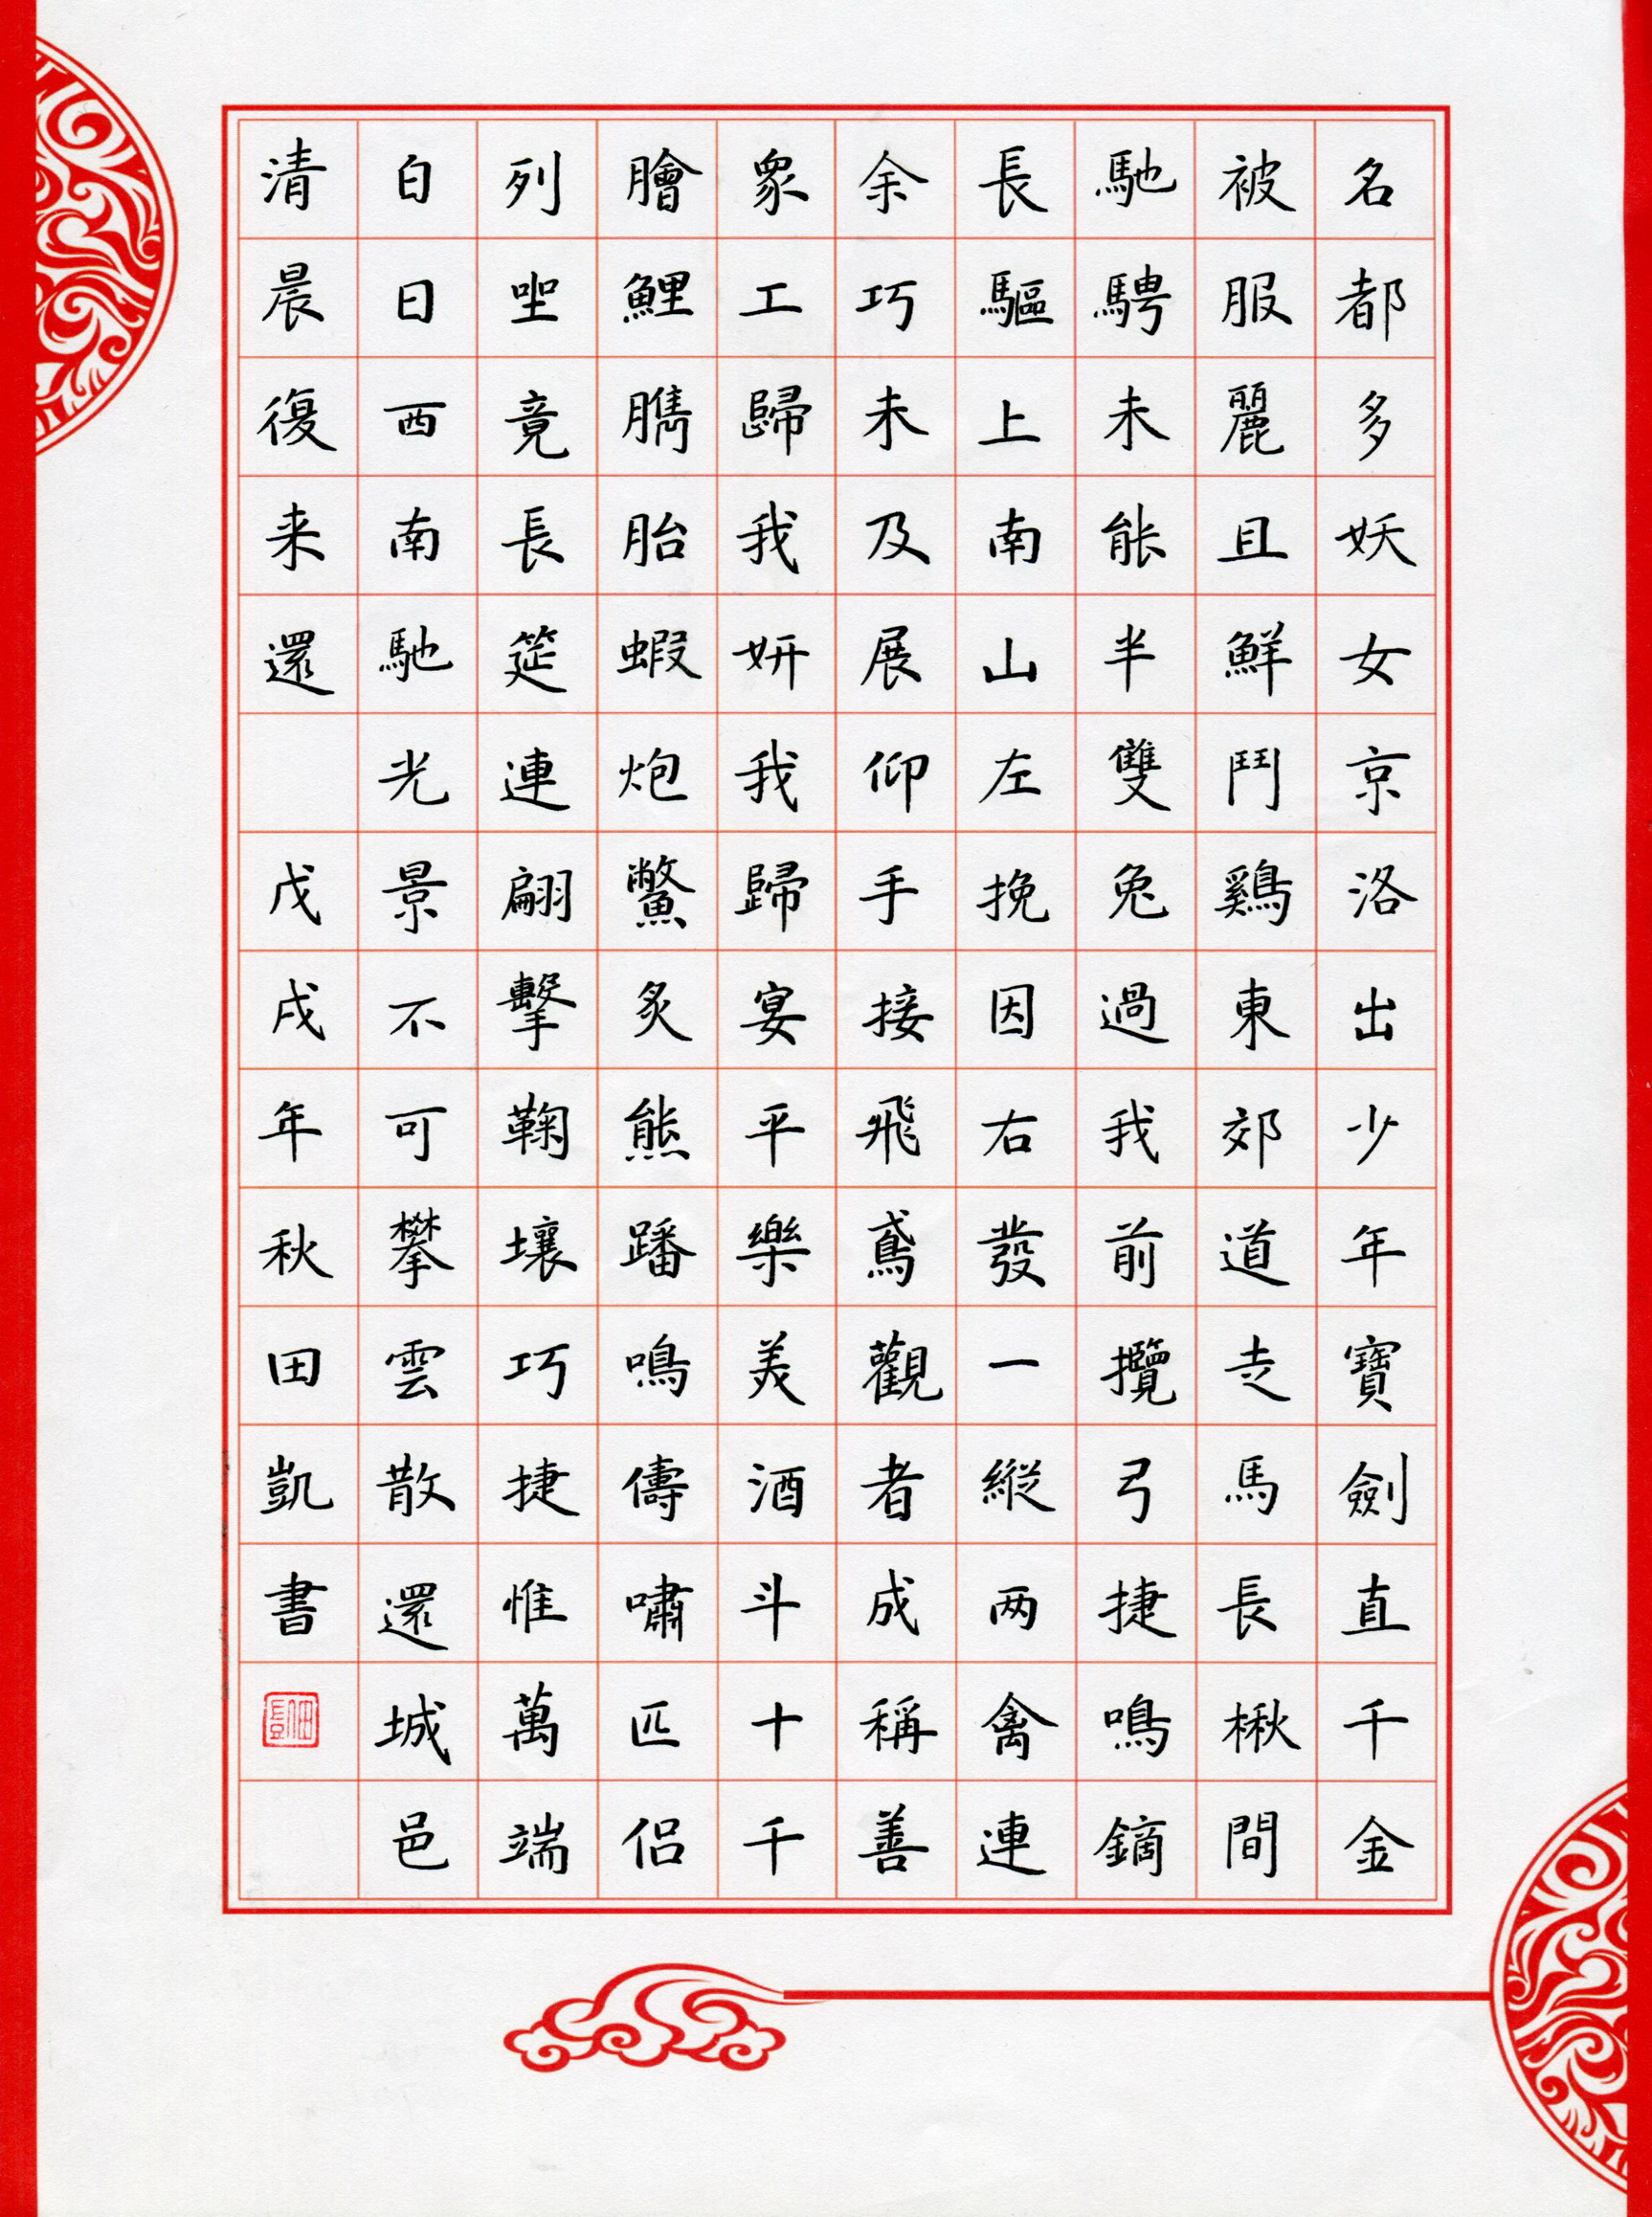 名都多妖女京洛出少年寶劍直千金
被服麗且鮮鬥鷄東郊道走馬長楸間
馳騁未能半雙兔過我前攬弓捷鳴鏑
長驅上南山左挽因右發一縱两禽連
余巧未及展仰手接飛鳶觀者咸稱善
衆工歸我妍我歸宴平樂美酒斗十千
膾鯉臇胎蝦炮鱉炙熊蹯鳴儔嘯匹侣
列坐竟長筵連翩擊鞠壤巧捷惟萬端
白日西南馳光景不可攀雲散還城邑
清晨復来還 戊戌年秋田凱書
田凱